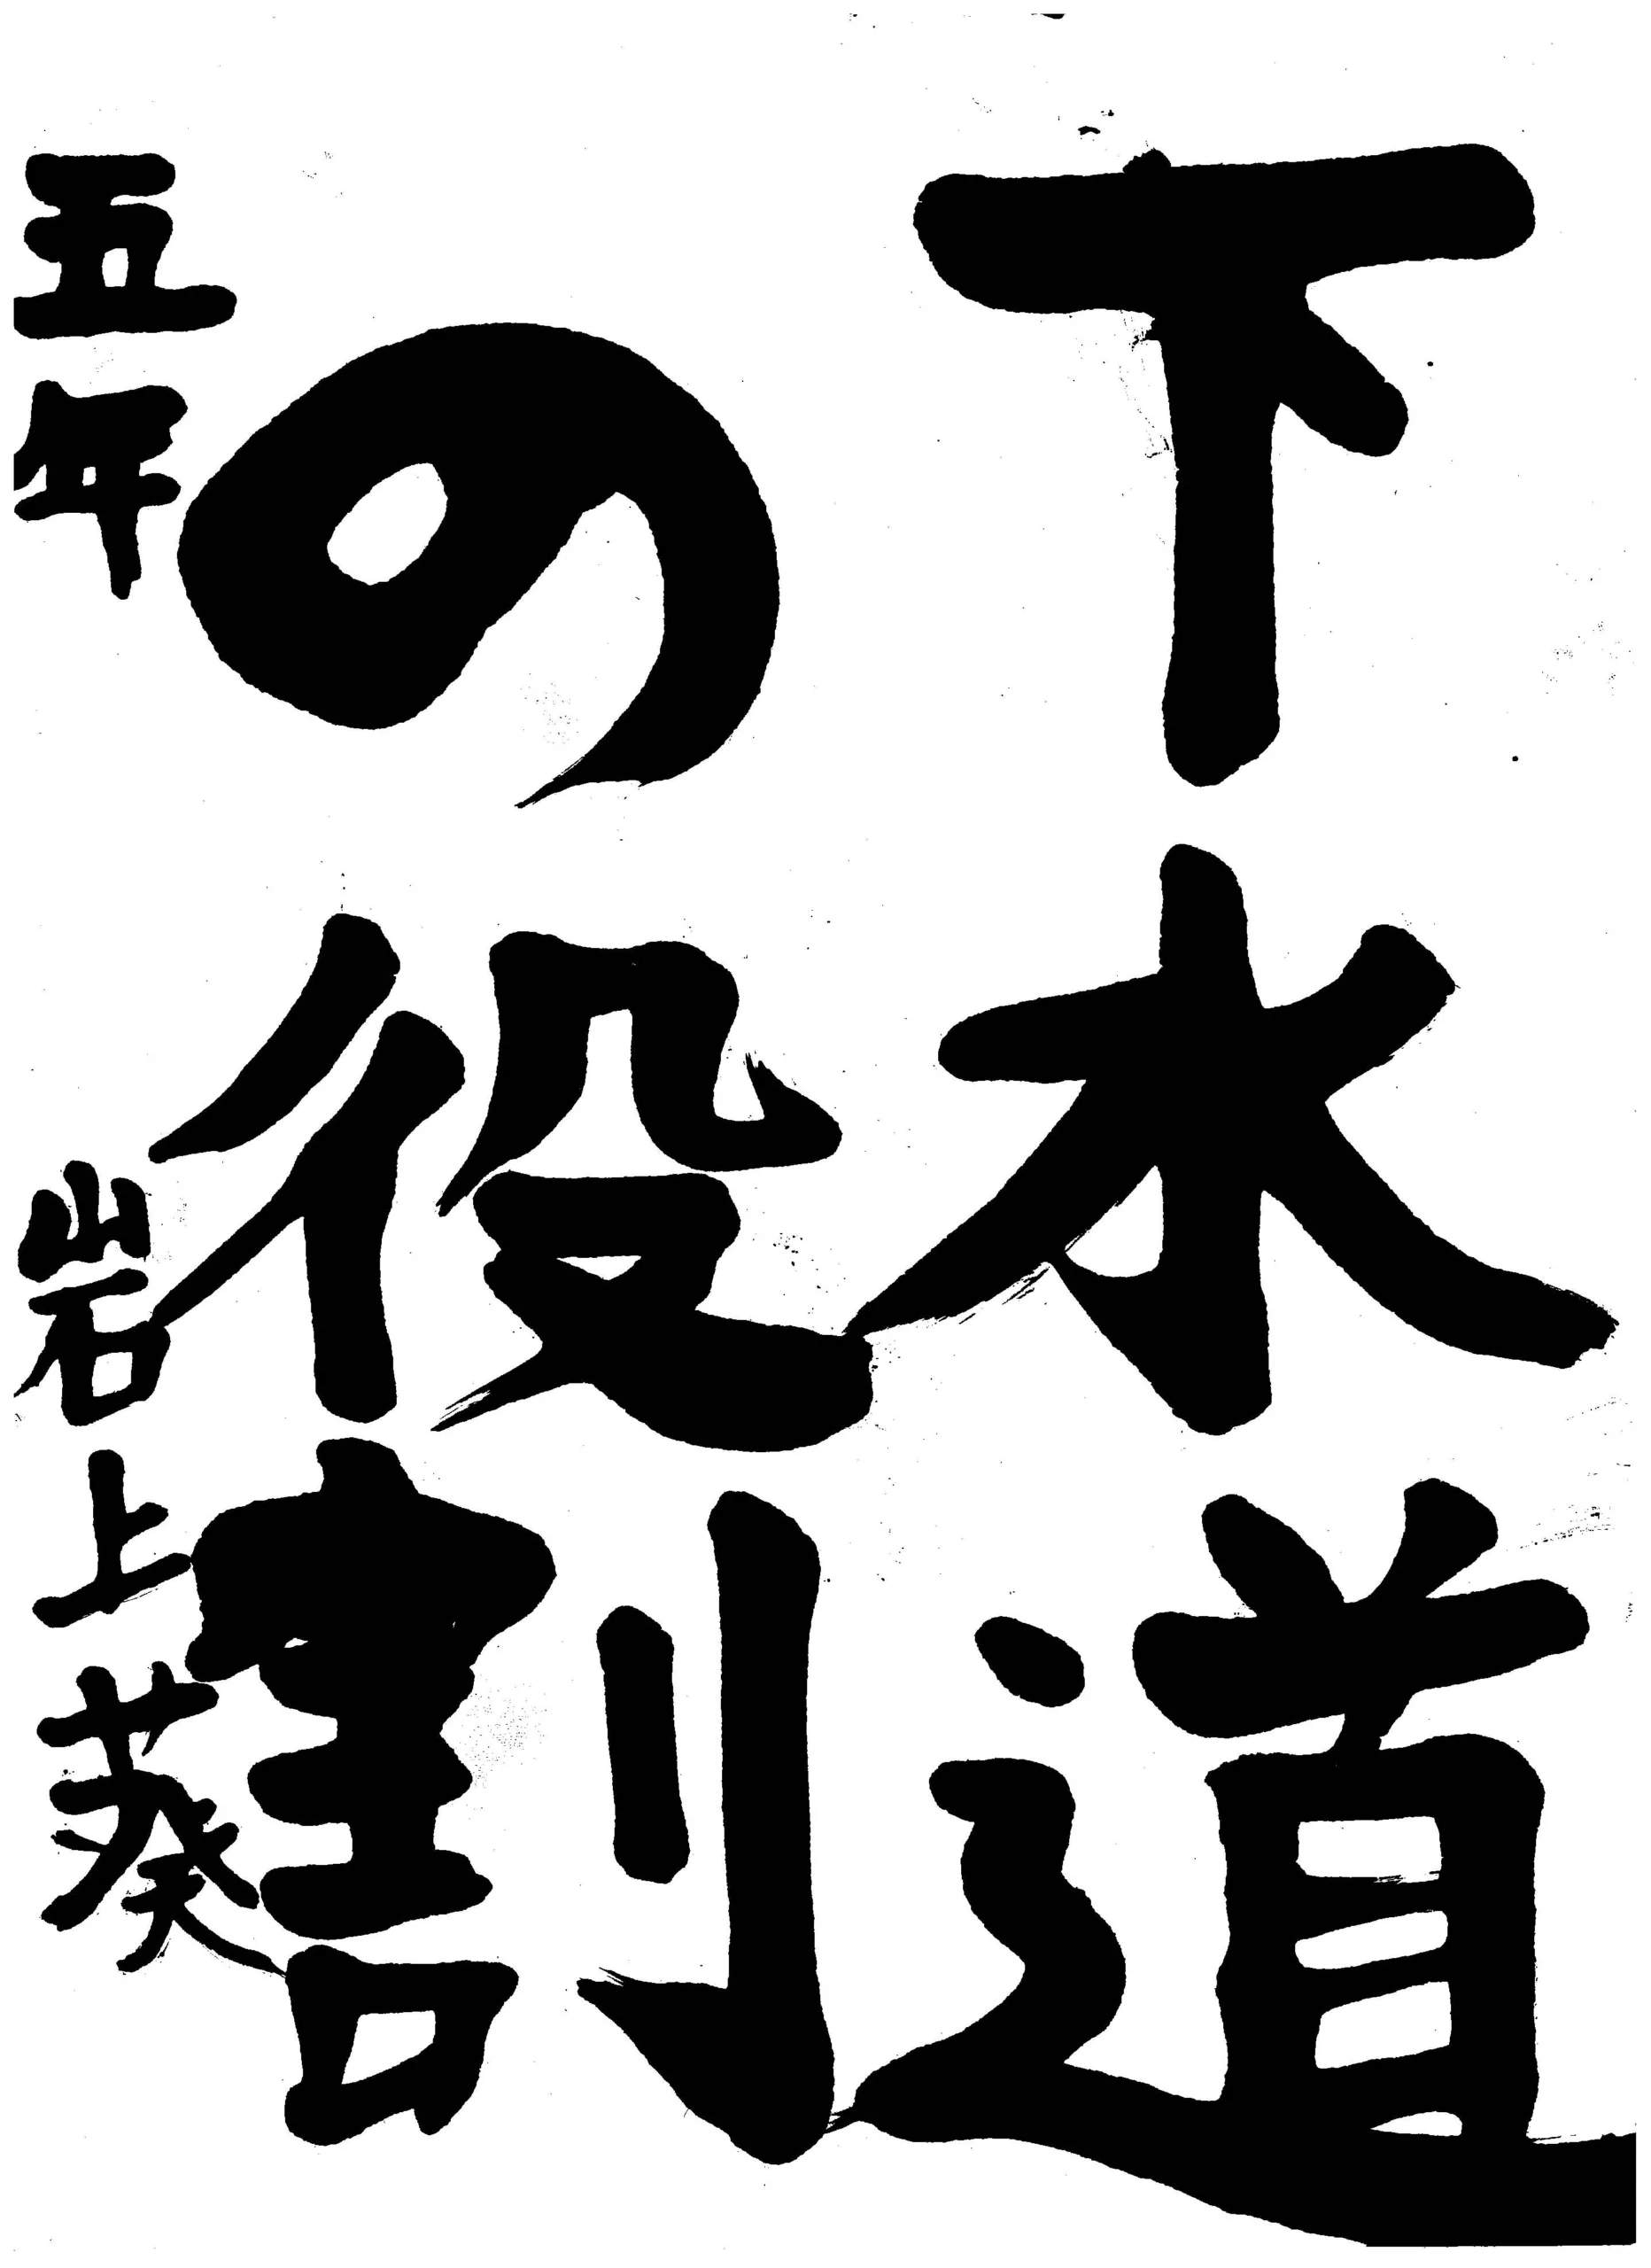 下水道
の役割
五年 岩上葵